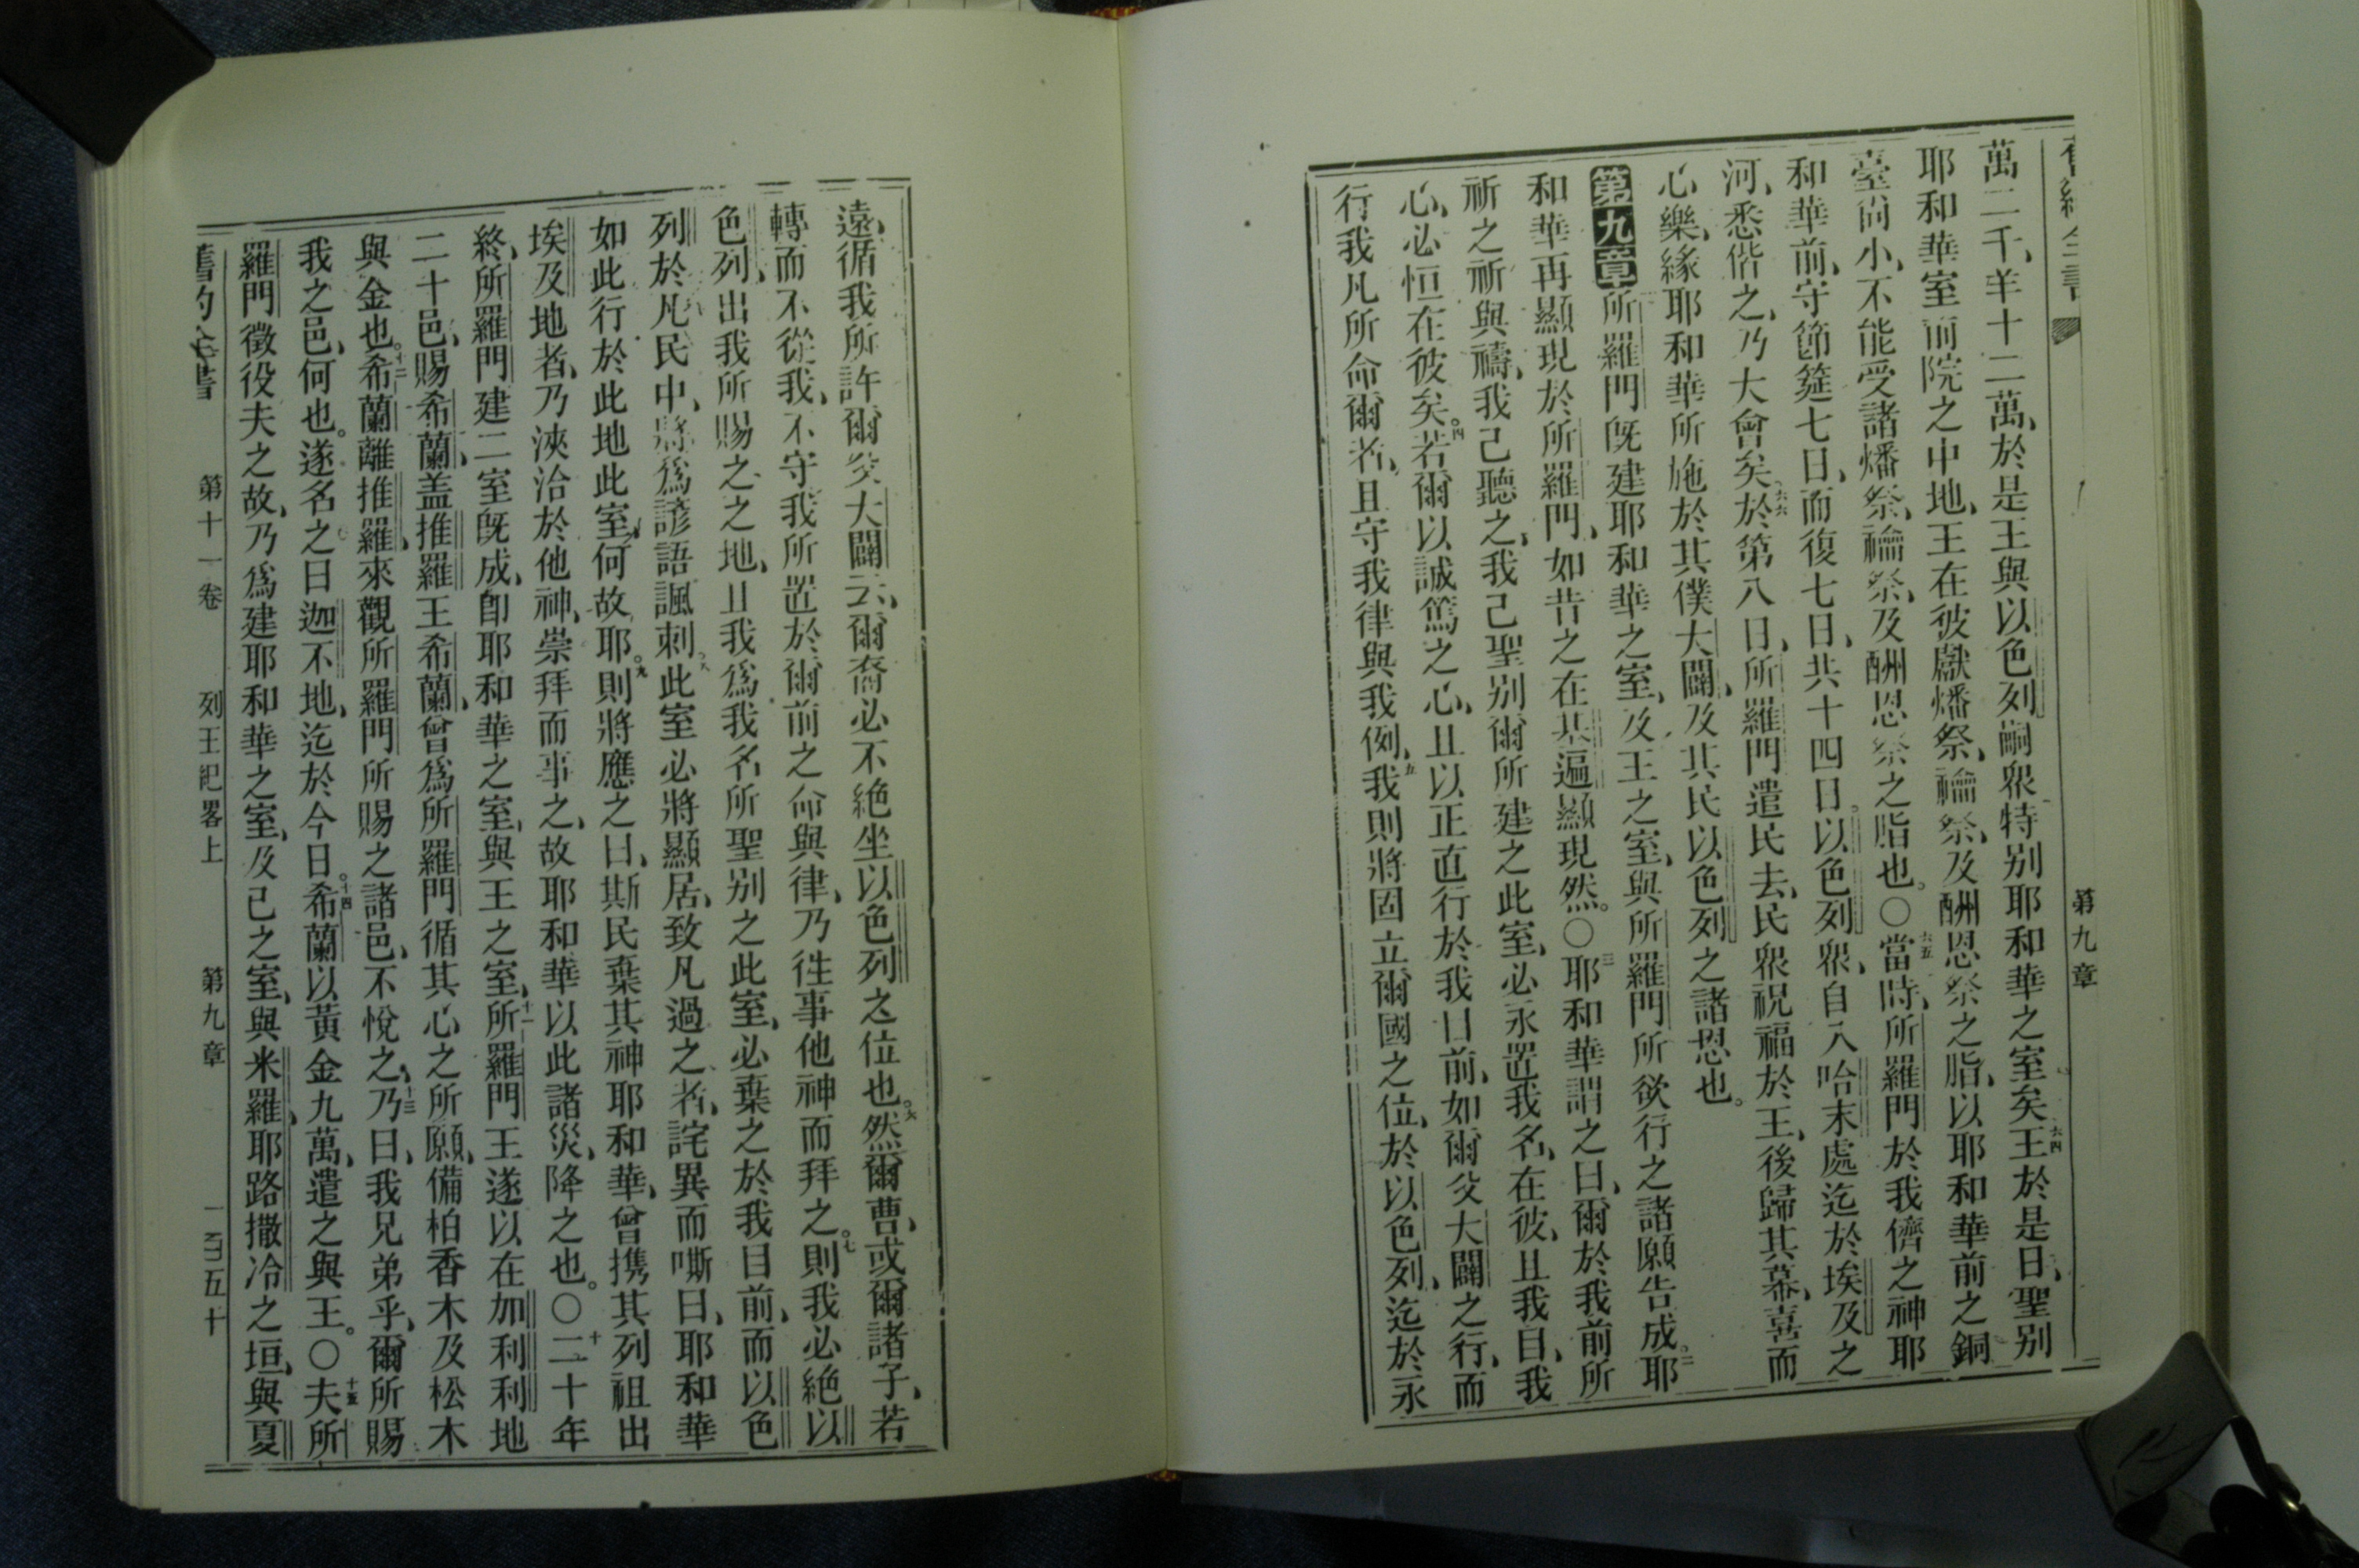 第九章
萬二千、羊十二萬、於是王與以色列嗣衆特别耶和華之室矣、六四王於是日、聖别
耶和華室前院之中地、王在彼獻燔祭、禴祭、及酬恩祭之脂、以耶和華前之銅
臺尙小、不能受諸燔祭、禴祭、及酬恩祭之脂也。〇六五當時、所羅門於我儕之神耶
和華前、守節筵七日、而復七日、共十四日。以色列衆、自入哈末處迄於埃及之
河、悉偕之、乃大會矣、六六於第八日、所羅門遣民去、民衆祝福於王、後歸其幕、喜而
心樂、緣耶和華所施於其僕大闢、及其民以色列之諸恩也。
第九章所羅門旣建耶和華之室、及王之室、與所羅門所欲行之諸願告成。二耶
和華再顯現於所羅門、如昔之在基遍顯現然。〇三耶和華謂之曰、爾於我前所
祈之祈與禱、我已聽之、我已聖别爾所建之此室、必永置我名、在彼、且我目、我
心、必恒在彼矣。四若爾以誠篤之心、且以正直行於我目前、如爾父大闢之行、而
行我凡所命爾者、且守我律與我例、五我則將固立爾國之位、於以色列、迄於永
遠、循我所許爾父大闢云、爾裔必不絕坐以色列之位也。六然爾曹、或爾諸子、若
轉而不從我、不守我所置於爾前之命與律、乃往事他神而拜之。七則我必絕以
色列、出我所賜之之地、且我爲我名所聖别之此室、必棄之於我目前、而以色
列於凡民中、將爲諺語諷刺、八此室必將顯居、致凡過之者、詫異而嘶曰、耶和華
如此行於此地此室、何故耶。九則將應之曰、斯民棄其神耶和華、曾携其列祖出
埃及地者、乃浹洽於他神、崇拜而事之、故耶和華以此諸災、降之也。〇十二十年
終、所羅門建二室旣成、卽耶和華之室、與王之室、十一所羅門王遂以在加利利地
二十邑、賜希蘭、盖推羅王希蘭、曾爲所羅門循其心之所願、備柏香木及松木
與金也。十二希蘭離推羅、來觀所羅門所賜之諸邑、不悅之、十三乃曰、我兄弟乎、爾所賜
我之邑、何也。遂名之曰迦不地、迄於今日。十四希蘭以黃金九萬、遣之與王。〇十五夫所
羅門徵役夫之故、乃爲建耶和華之室、及己之室、與米羅、耶路撒冷之垣、與夏
舊約全書　第十一卷　列王紀畧上　第九章　一百五十